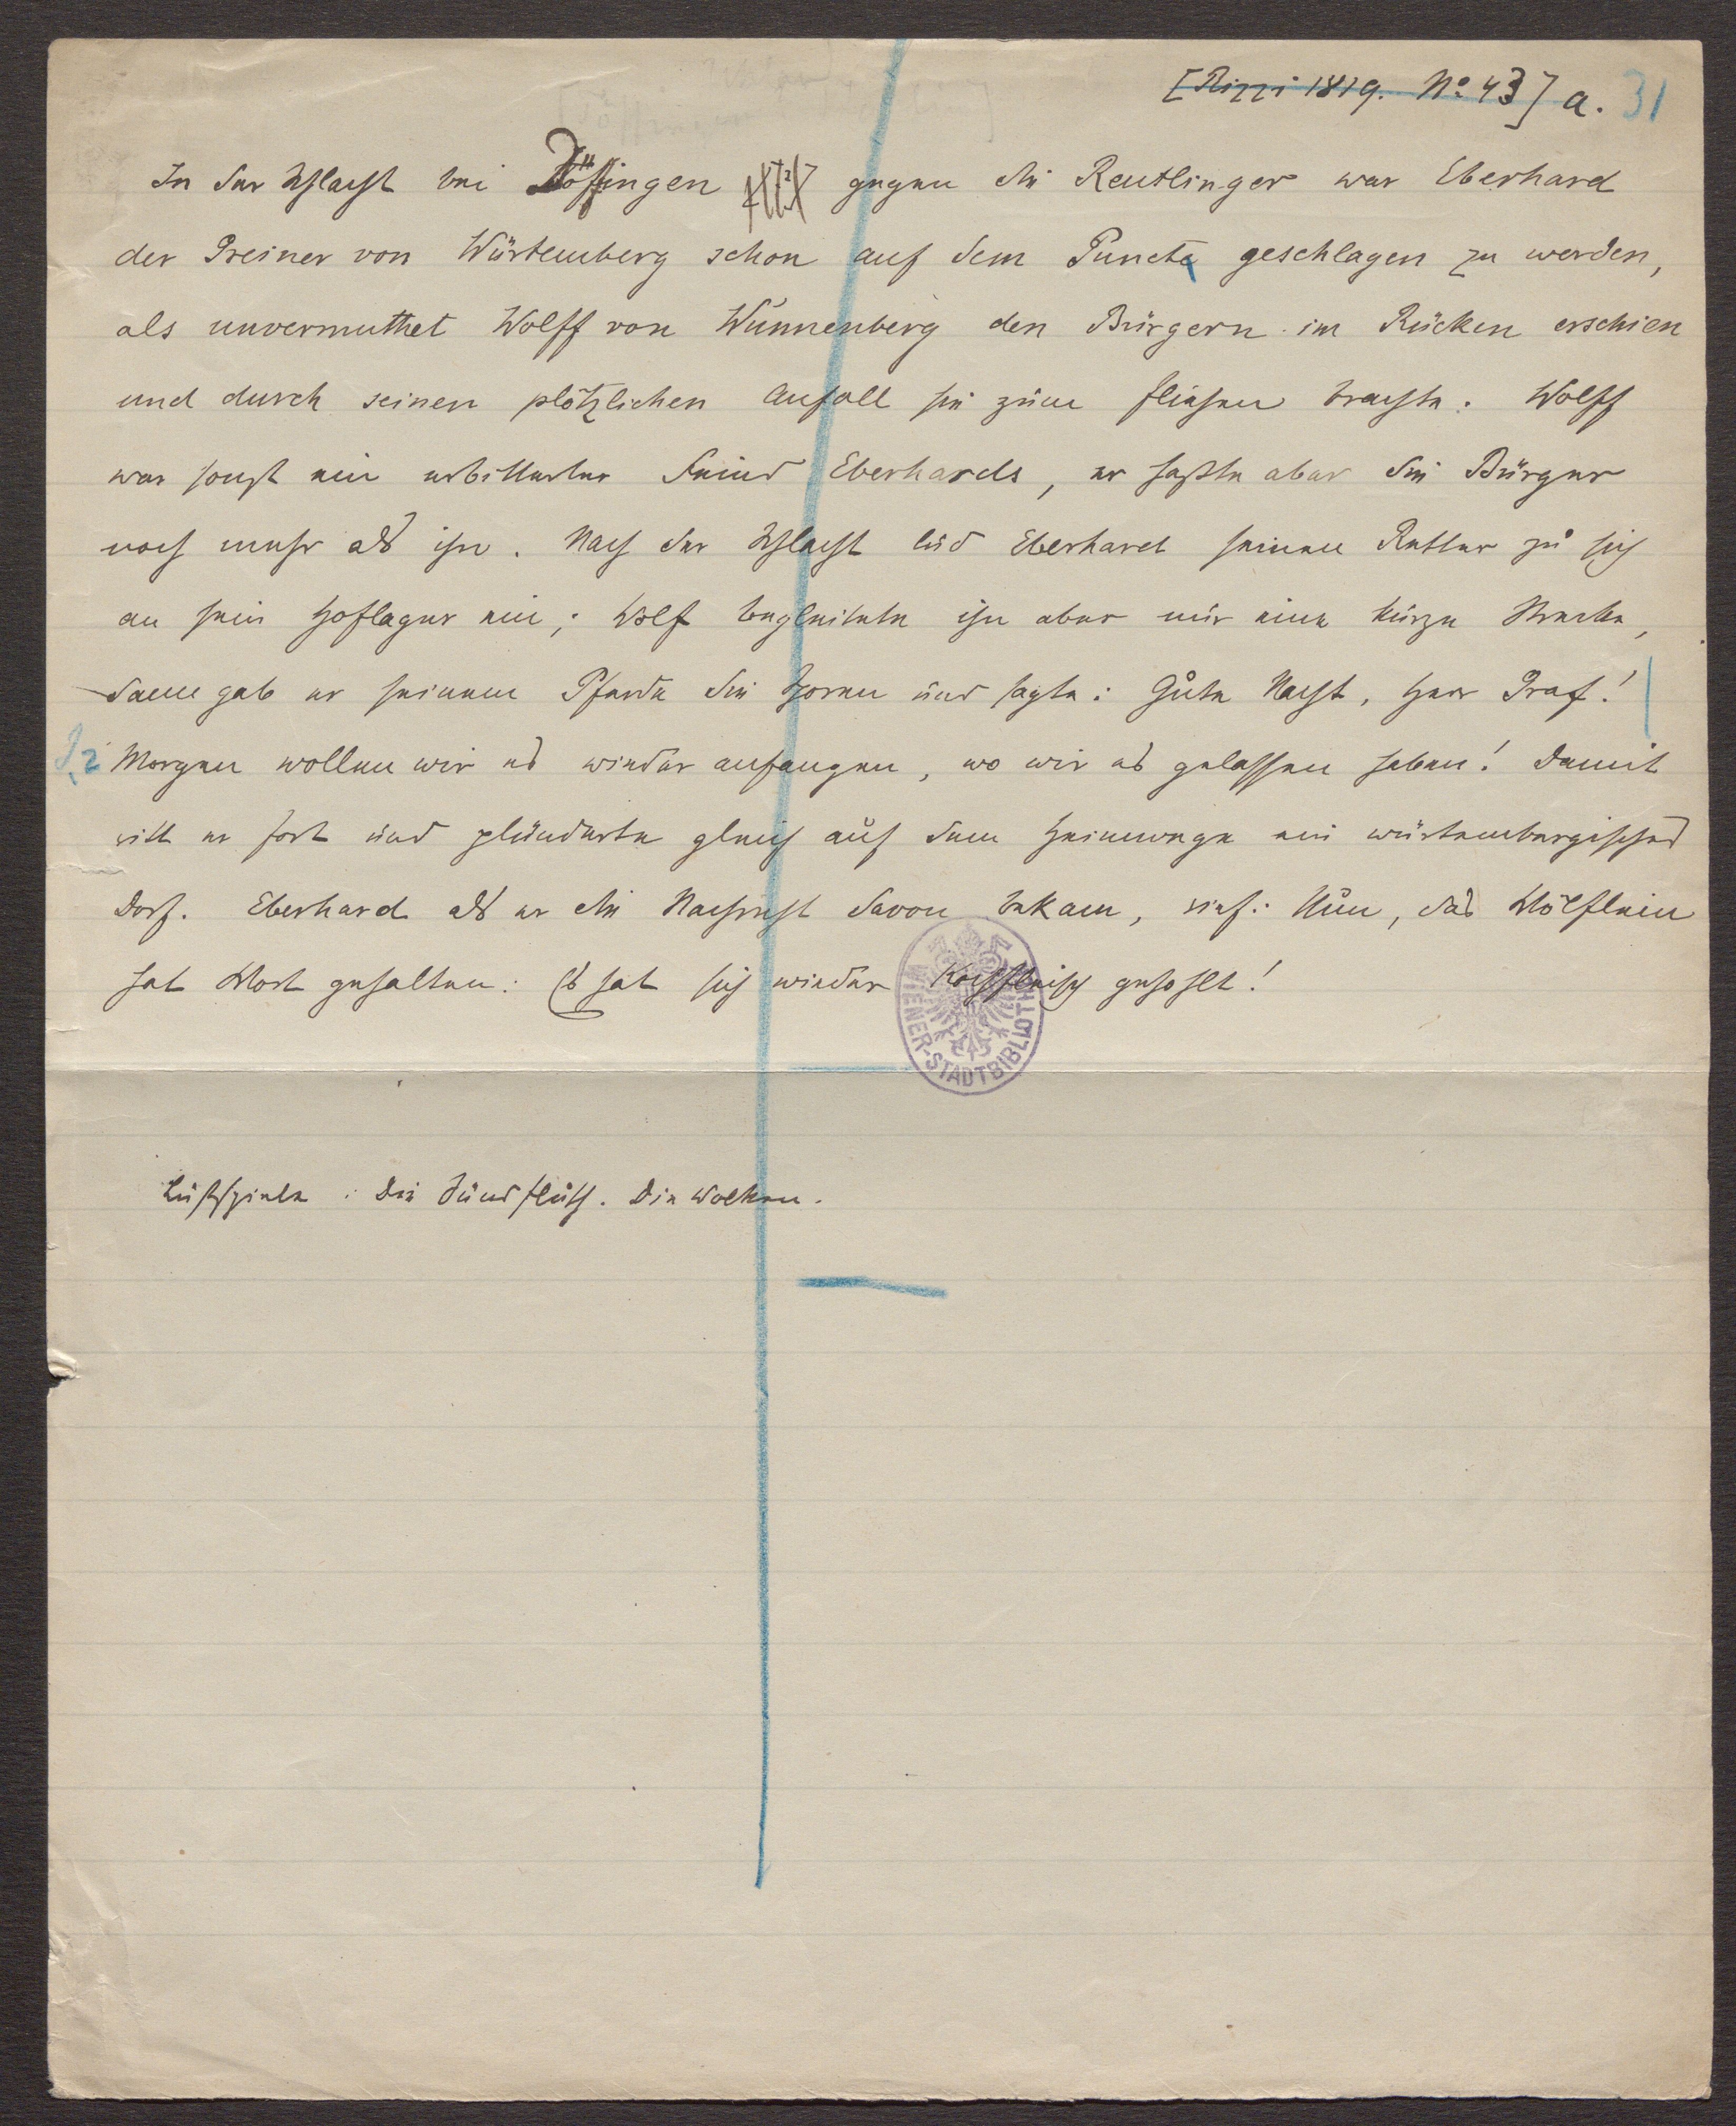 [Rizzi 1819. No 43] a. 31
In der Schlacht bei Döffingen gegen die Reutlinger war Eberhard
der Greiner von Würtemberg schon auf dem Puncte geschlagen zu werden,
als unvermuthet Wolff von Wunnenberg den Bürgern im Rücken erschien
und durch seinen plötzlichen Anfall sie zum fliehen brachte. Wolff
war sonst ein erbitterter Feind Eberhards, er haßte aber die Bürger
noch mehr als ihn. Nach der Schlacht lud Eberhard seinen Retter zu sich
an sein Hoflager ein; Wolf begleitete ihn aber nur eine kurze Strecke,
dann gab er seinem Pferde die Sporen und sagte: Gute Nacht, Herr Graf!
Morgen wollen wir es wieder anfangen, wo wir es gelassen haben! Damit
ritt er fort und plünderte gleich auf dem Heimwege ein würtembergisches
Dorf. Eberhard als er die Nachricht davon bekam, rief: Nun, das Wölflein
hat Wort gehalten: Es hat sich wieder Kochfleisch geholt!
WIENER-STADTBIBLIOTHEK
Lustspiele: Die Sündfluth. Die Wolken.